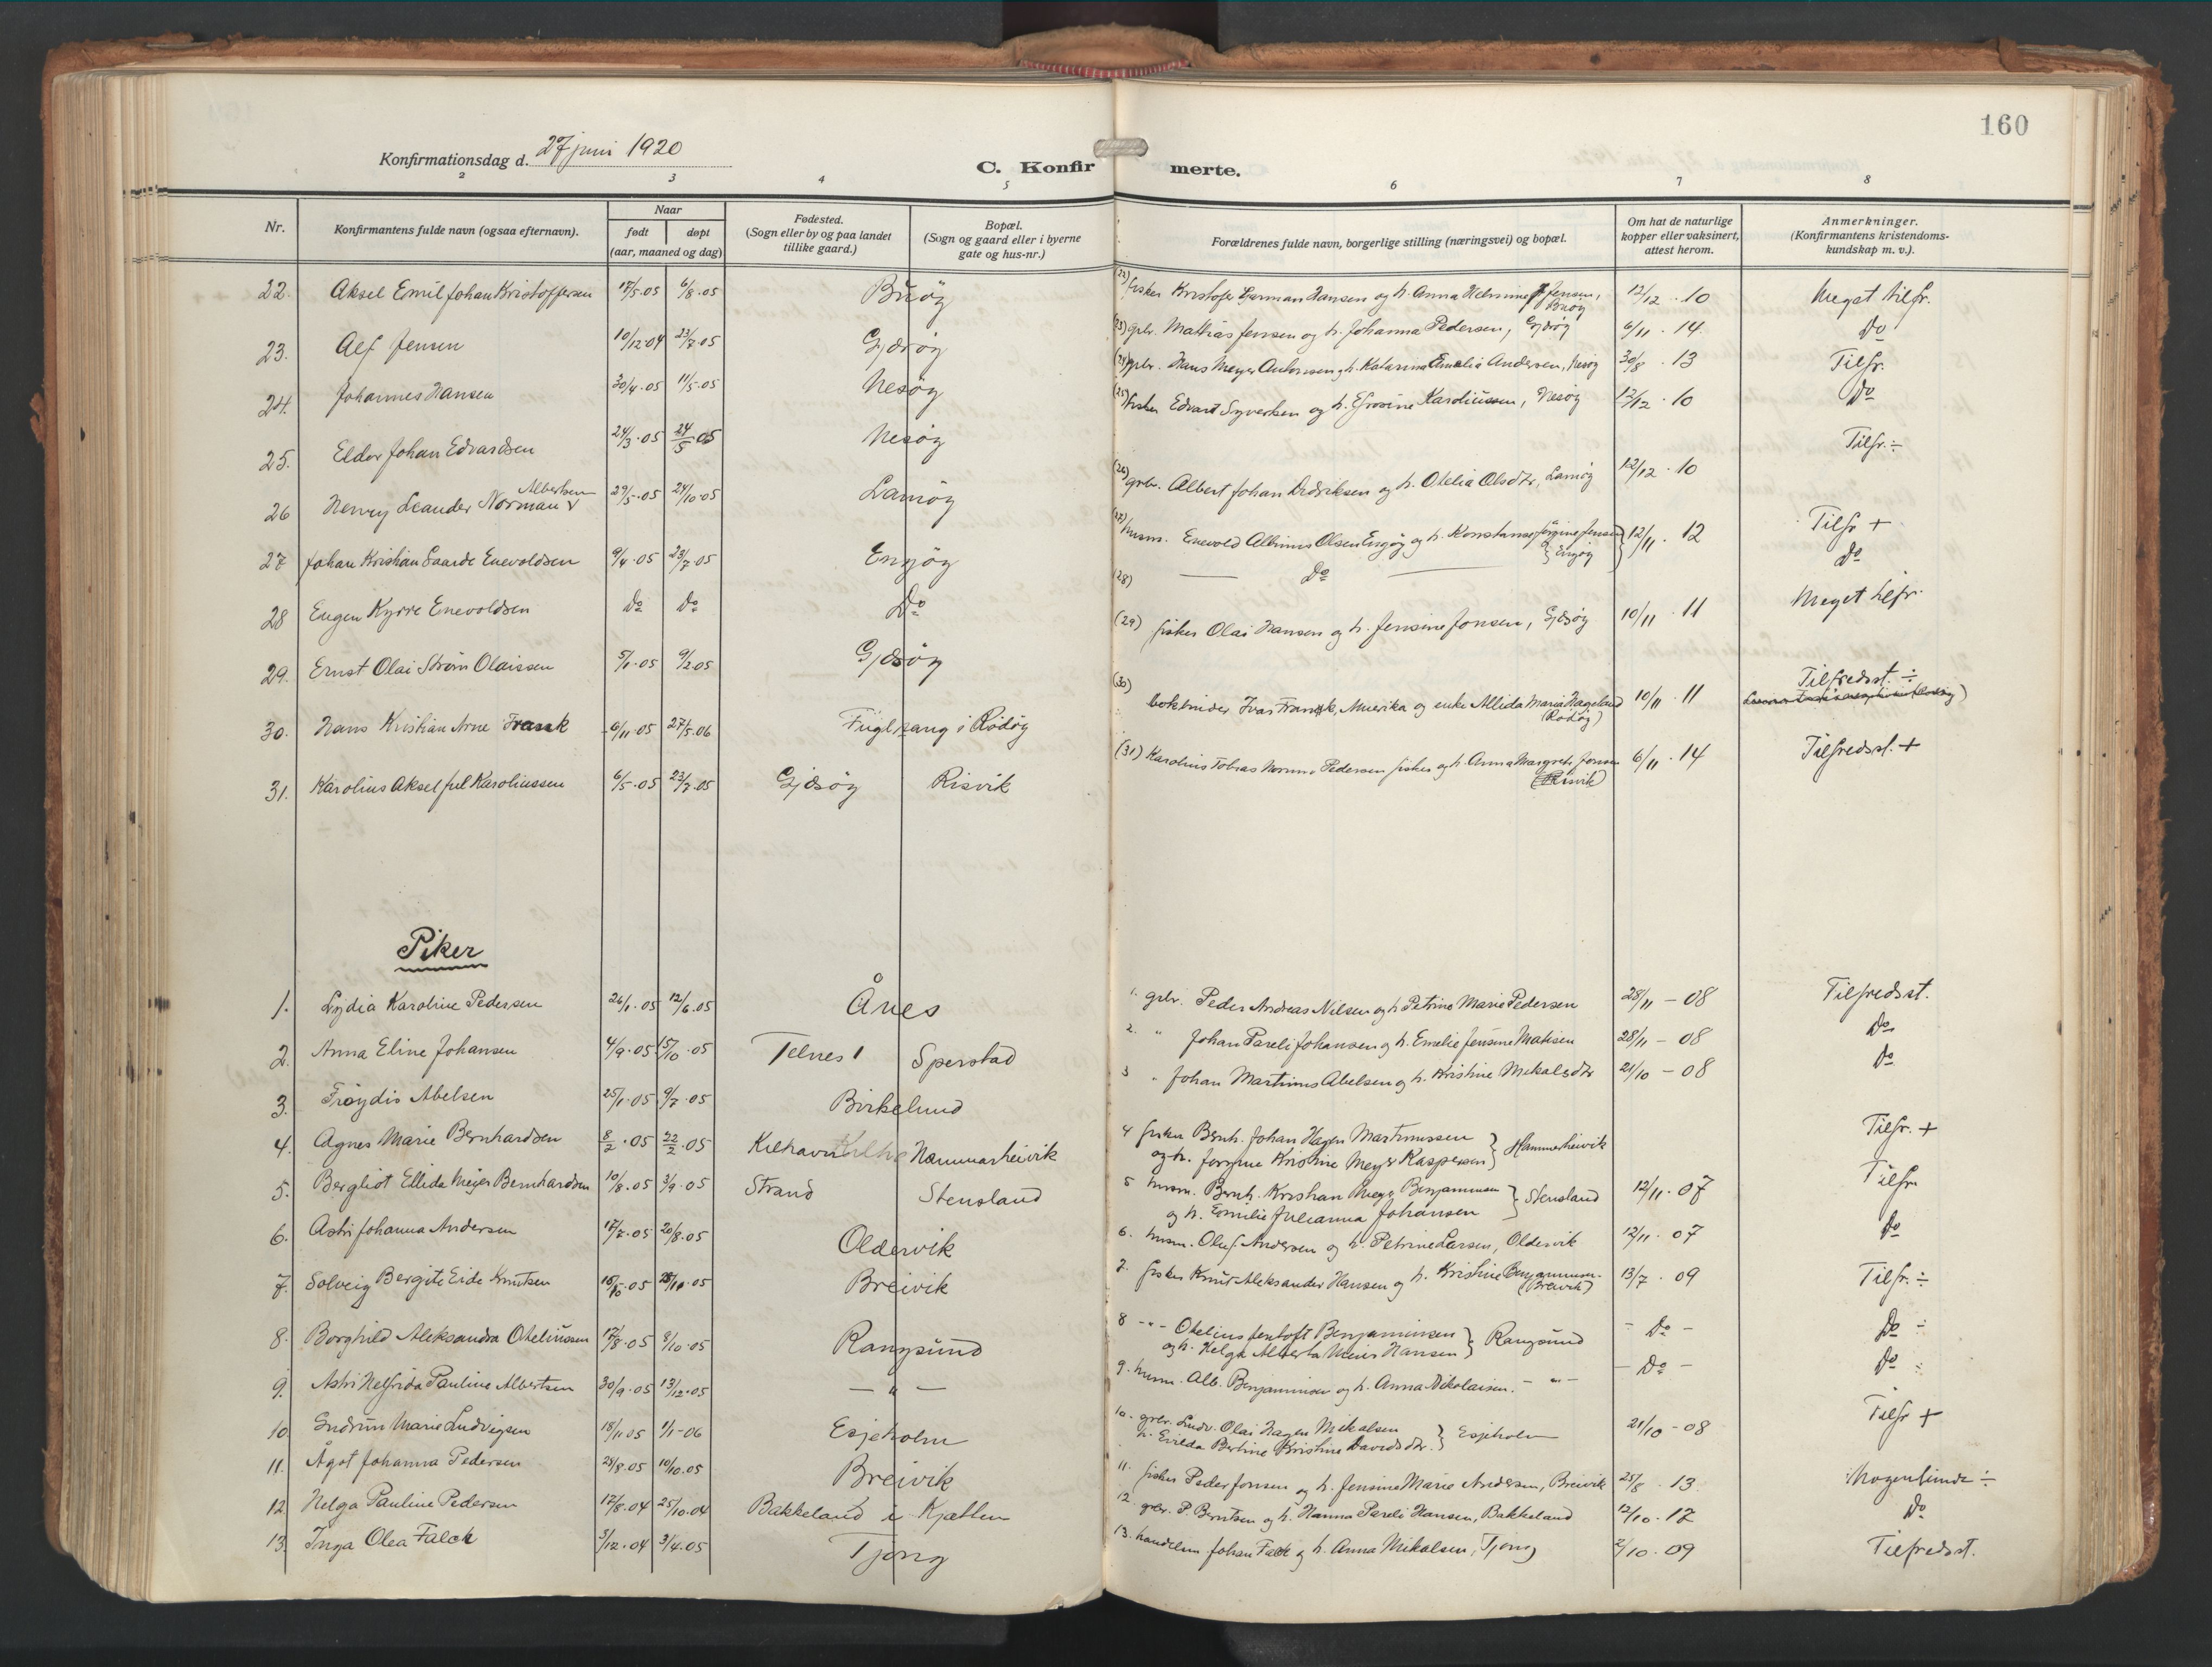 160
Konfirmationsdag d. 27 juni 1920
C. Konfirmerte.
2 3 4 5 6 7 8
Nr.
Konfirmantens fulde navn (ogsaa efternavn).
Naar
født døpt
(aar, maaned og dag)
Fødested.
(Sogn eller by og paa landet
tillike gaard.)
Bopæl.
(Sogn og gaard eller i byerne
gate og hus-nr.)
Forældrenes fulde navn, borgerlige stilling (næringsvei) og bopæl.
Om hat de naturlige
kopper eller vaksinert,
attest herom.
Anmerkninger.
(Konfirmantens kristendoms-
kundskap m. v.).
22. Aksel Emil Johan Kristoffersen 17/5.05 6/8.05 Buøy (22) fisker Kristofer Hansen og h. Anna Jensen, Buøy 12/12.10 Meget tilfr.
23. Alf Jensen 10/12.04 23/7.05 Gjæsøy (23) gbr. Mathias Jenssen og h. Johanna Pedersen, Gjæsøy 6/11.14 Do
24. Johannes Hansen 30/4.05 11/5.05 Nesøy (24) gbr. Hans Meyer Antonsen og h. Katarina Emelia Andersen, Nesøy 30/8.13 Tilfr.
25. Eldor Johan Edvardsen 24/3.05 24/5 05 Nesøy (25) fisker Edvart Syvertsen og h. Efrosine Karoliussen, Nesøy 12/12.10 Do
Tilfr. ÷
26 Henry Leander Norman Albertsen 29/5.05 24/10.05 Lamøy (26) gbr. Albert Johan Dedriksen og h. Otelia Olsdtr, Lamøy 12/12.10
27 Johan Kristian Enevoldsen 9/4.05 23/7.05 Engøy (27) husm. Enevold Albinus Olsen Engøy og h. Konstanse Jørgine Jensen } Engøy 12/11.12 Tilfr +
28 Eugen Kyrre Enevoldsen Do Do Do (28) Do Do
29. Ernst Olai Strøm Olaissen 5/1.05 9/2 05 Gjæsøy (29) fisker Olai Hansen og h. Jensine Jonsen, Gjæsøy 10/11.11 Meget tilfr.
30. Hans Kristian Arne Frank 6/11.05 27/5.06 Fuglsang i Rødøy (30) Ivar Frank, Amerika og enke Allida Maria Hageland (Rødøy) 10/11.11 Tilfredsst. ÷
31. Karolius Aksel Juel Karoliussen 6/5.05 23/7.05 Gjæsøy Risvik (31) Karolius Tobias Pedersen fisker og h. Anna Margreth Jonsen (Risvik) 6/11.14 Tilfredsst. +
Piker
1. Lydia Karoline Pedersen 26/1.05 12/6.05 Ånes 1. gbr. Peder Andreas Nilsen og h Petrine Marie Pedersen 28/11 – 08 Tilfredsst.
2. Anna Eline Johansen 4/9.05 15/10.05 Telnes Sperstad 2. " Johan Pareli Johansen og h. Emelie Jensine Matisen 28/11 – 08 Do
3. Frøydis Abelsen 25/1.05 9/7.05 Birkelund 3 " Johan Martinus Abelsen og h. Kristine Mikalsdtr 21/10 – 08 Do
4. Agnes Marie Bernhardsen 8/2.05 22/2.05 Kilhavn Hammarheivik 4 fisker Bernh. Johan Hagen Martinussen
og h. Kristine Meyer Kaspersen } Hammerheivik Tilfr. +
5. Bergliot Ellida Meyer Bernhardsen 10/8.05 3/9.05 Strand Stensland 5 husm. Bernh. Kristian Meyer Benjaminsen
og h. Emilie Julianna Johansen } Stensland 12/11.07 Tilfr
6. Astri Johanna Andersen 17/7.05 20/8.05 Oldervik 6. husm. Oluf Andersen og h. Petrine Larsen, Oldervik 12/11.07 Do
7. Solveig Bergite Eide Knutsen 05 05 Breivik 7. fisker Knut Aleksander Hansen og h. Kristine Benjaminsen. (Breivik) 13/7.09 Tilfr. ÷
8. Borghild Aleksandra Oteliussen 17/8.05 8/10.05 Rangsund 8 - " - Otelius Jentoft Benjaminsen
og h. Helga Alberta Meier Hansen } Rangsund – Do – Do ÷
9. Astri Helfrida Pauline Albertsen 30/9.05 13/12.05 – " – 9. husm. Alb. Benjaminsen og h. Anna Nikolaisen. – " – – Do – Do ÷
10 Gudrun Marie Ludvigsen 18/11 05 1/1-06 Esjeholm 10. gbr. Ludv. Olai Hagen Mikalsen
h. Bertine Kristine Davidsdtr. } Esjeholm 21/10 – 08 Tilfr +
11. Ågot Johanna Pedersen 25/8.05 10/10.05 Breivik 11. fisker Peder Jonsen og h. Jensine Marie Andersen, Breivik 25/8.13 Nogenlunde ÷
12. Helga Pauline Pedersen 17/8.04 25/10.04 Bakkeland i Kjøtten 12. gbr. P. Berntsen og h. Hanna Pareli Hansen, Bakkeland 12/10.12 Do
13. Inga Olea Falck 3/12.04 3/4.05 Tjong 13. handelsm. Johan Falck og h. Anna Mikalsen, Tjong 2/10.09 Tilfredsst.